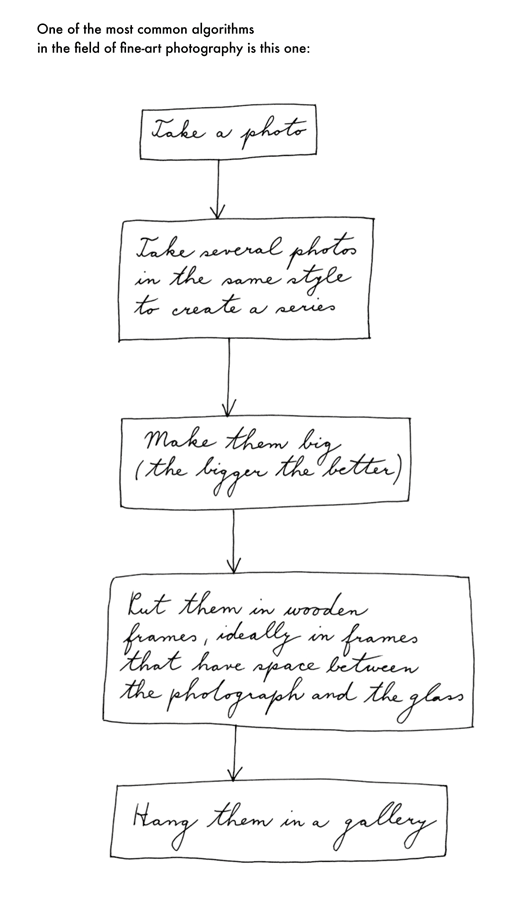 One of the most common algorithms
in the field of fine-art photography is this one:
Take a photo
Take several photos
in the same style
to create a series
Make them big
(the bigger the better)
Put them in wooden
frames, ideally in frames
that have space between
the photograph and the glass
Hang them in a gallery